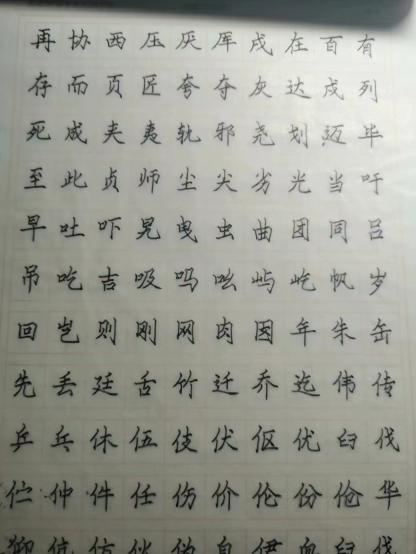 再 协 西 压 厌 厍 戌 在 百 有
存 而 页 匠 夸 夺 灰 达 戍 列
死 成 夹 夷 轨 邪 尧 划 迈 毕
至 此 贞 师 尘 尖 劣 光 当 吁
早 吐 吓 晃 曳 虫 曲 团 同 吕
吊 吃 吉 吸 吗 吆 屿 屹 帆 岁
回 岂 则 刚 网 肉 因 年 朱 缶
先 丢 廷 舌 竹 迁 乔 迄 伟 传
乒 乓 休 伍 伎 伏 伛 优 臼 伐
伫 仲 件 任 伤 价 伦 份 伧 华
仰 伉 仿 伙 伪 自 伊 血 臼 伐